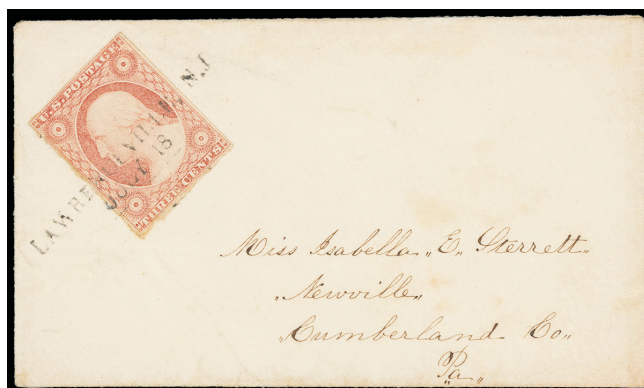 U.S. POSTAGE
THREE CENTS
LAWRENCEVILLE, N.J
JULY 18
Miss Isabella „E„ Sterrett„
„Newville„
„Cumberland Co„
Pa„